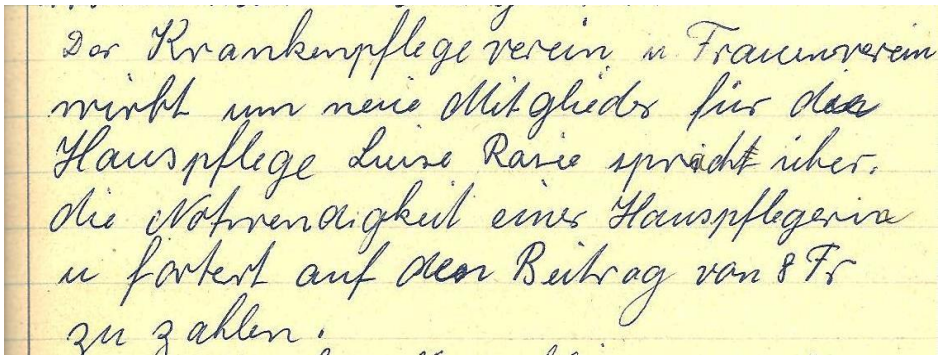 Der Krankenpflegeverein u Frauenverein
wirbt um neue Mitglieder für die
Hauspflege Luise Rasie spricht über.
die Notwendigkeit einer Hauspflegerin
u fortert auf den Beitrag von 8 Fr
zu zahlen.